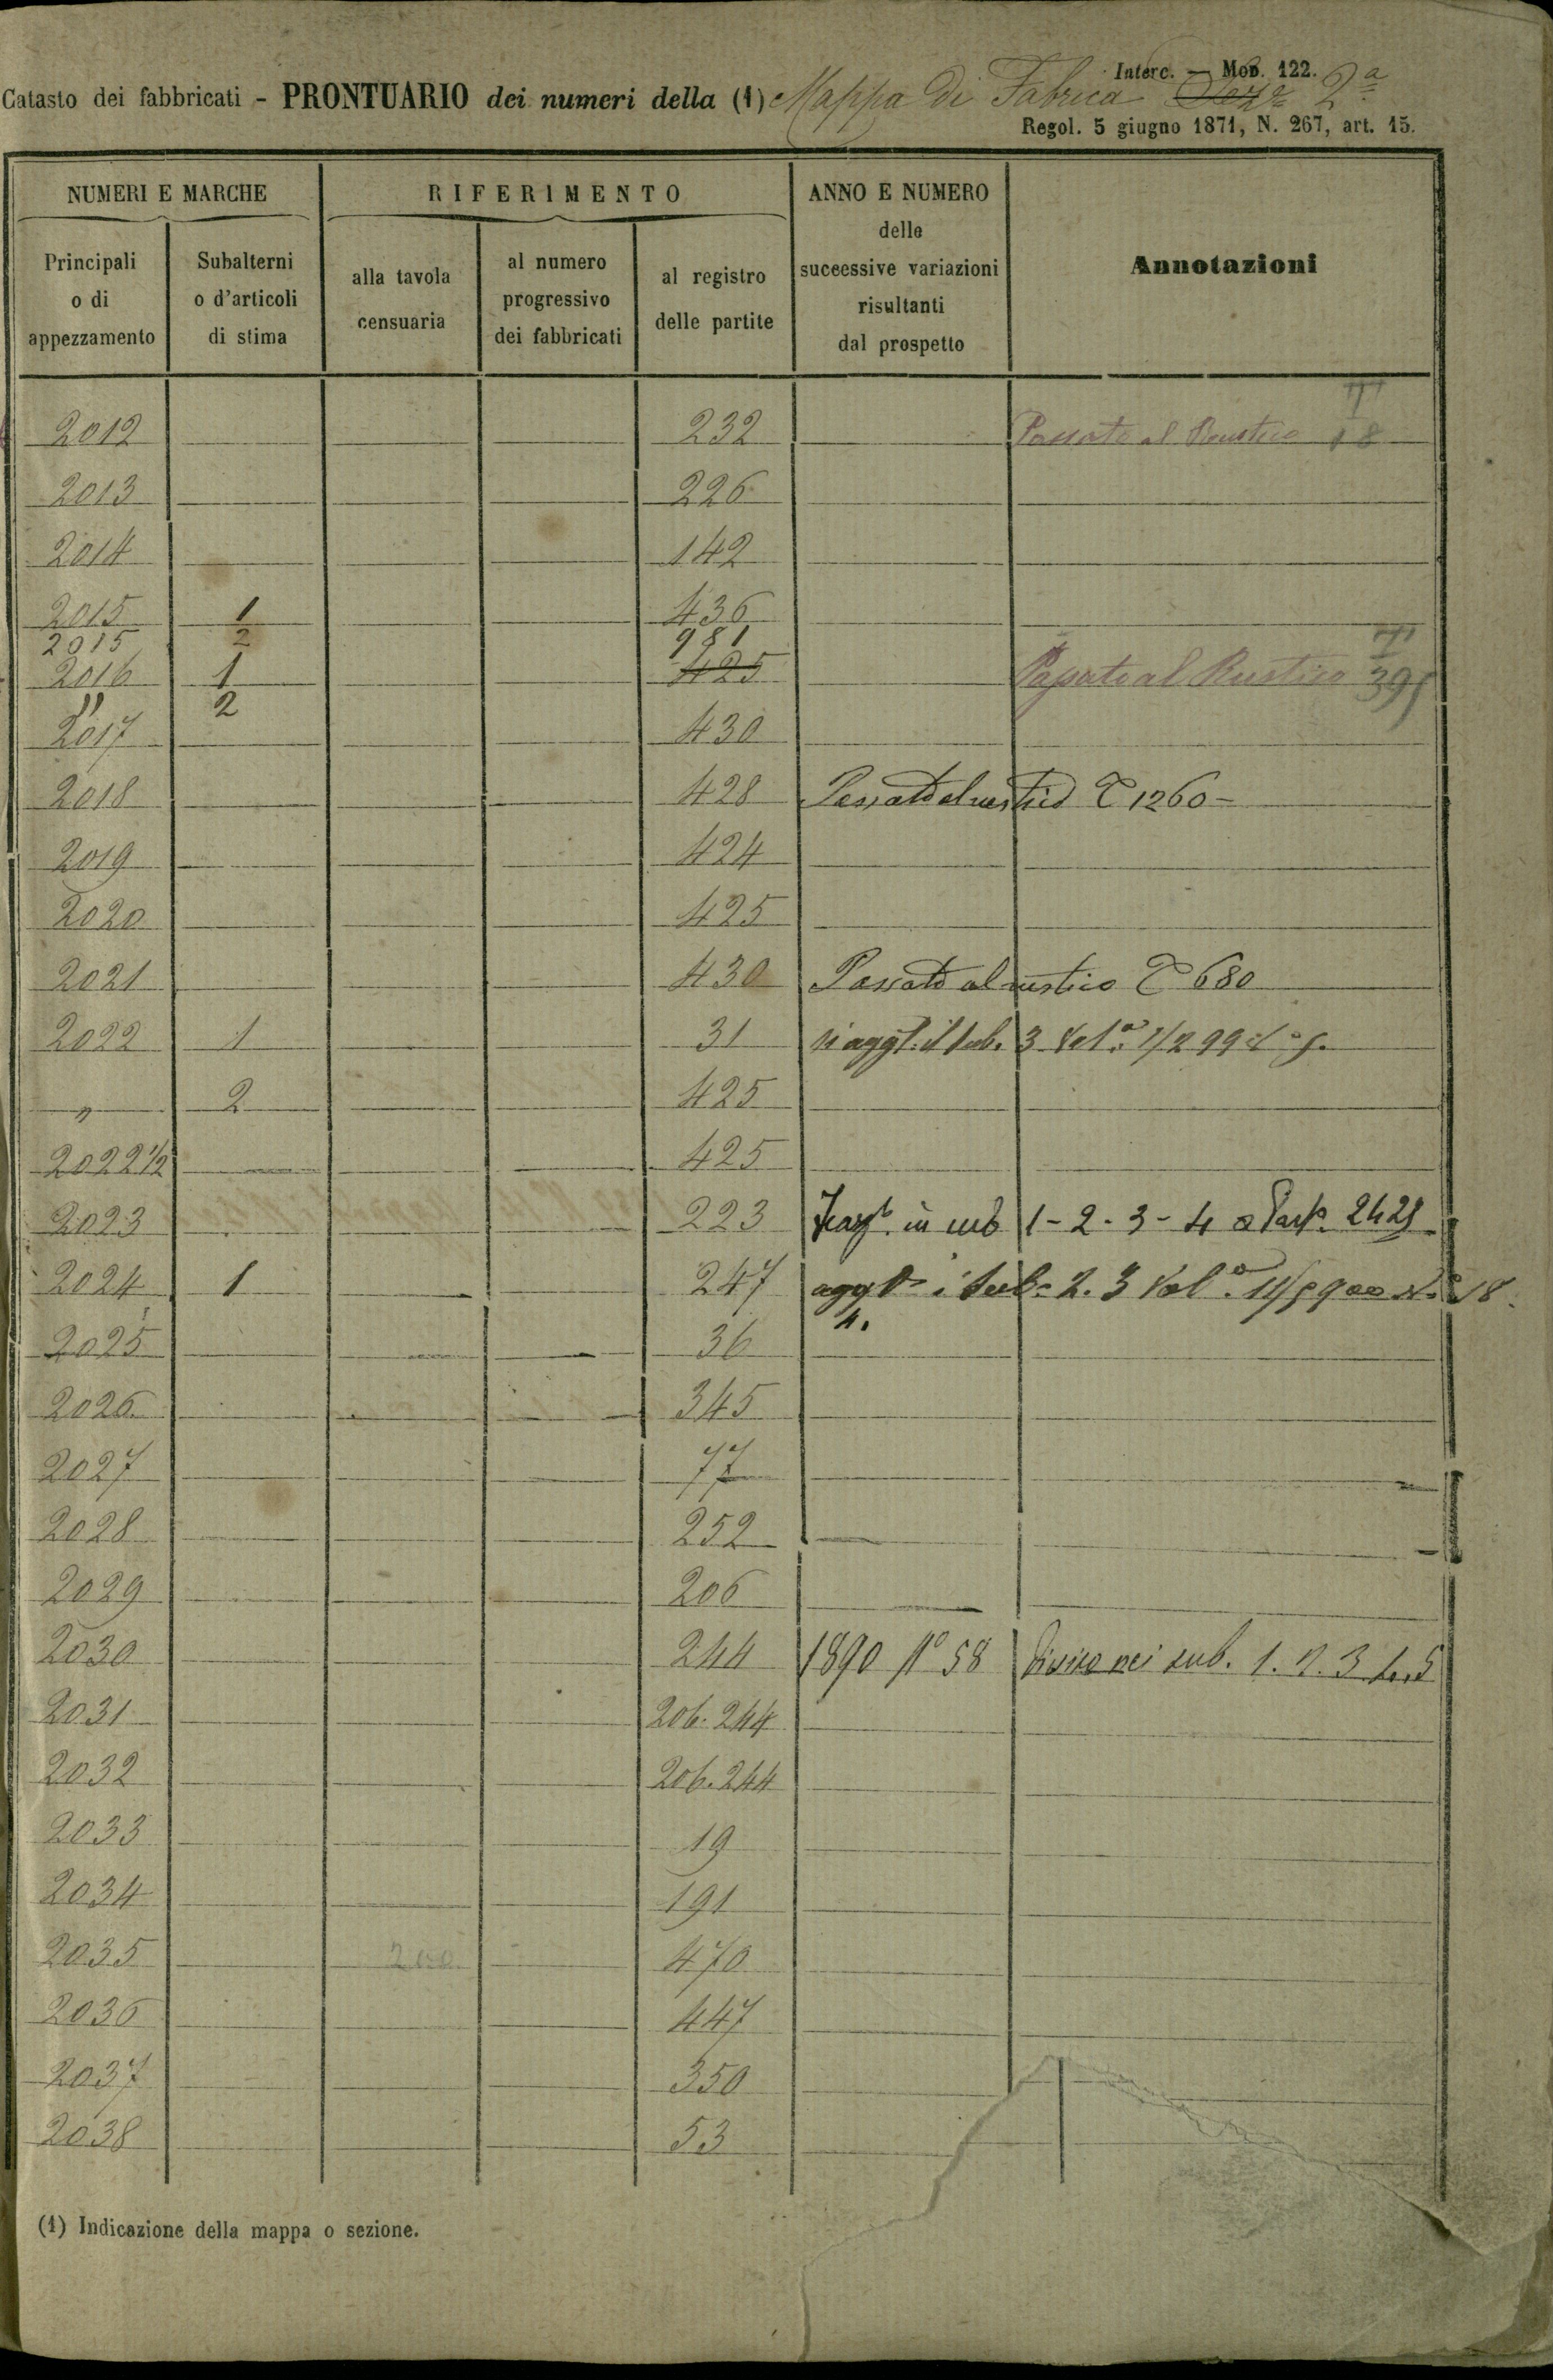 Interc. — Mod. 122.
Catasto dei fabbricati - PRONTUARIO dei numeri della (1) Mappa di Fabrica Sez.e 2ª
Regol. 5 giugno 1871, N. 267, art. 15.
NUMERI E MARCHE
RIFERIMENTO
ANNO E NUMERO
delle
successive variazioni
risultanti
dal prospetto
Annotazioni
Principali
o di
appezzamento
Subalterni
o d'articoli
di stima
alla tavola
censuaria
al numero
progressivo
dei fabbricati
al registro
delle partite
2012 232 Passato al Rustico T 18
2013 226
2014 142
2015 1 436
2015 2 981
2016 1 425 Passato al Rustico T 395
" 2
2017 430
2018 428 Passato al rustico T 1260 -
2019 424
2020 425
2021 430 Passato al rustico T 680
2022 1 31 si aggt. il sub. 3
" 2 425
2022 1/2 425
2023 223 in sub 1-2-3-4 a Part. 2429
2024 1 247 i sub. 2. 3 18.
4.
2025 36
2026 345
2027 77
2028 252
2029 206
2030 244 1890 N° 58 Diviso nei sub. 1. 2. 3 4. 5
2031 206. 244
2032 206. 244
2033 19
2034 191
2035 200 470
2036 447
2037 350
2038 53
(1) Indicazione della mappa o sezione.